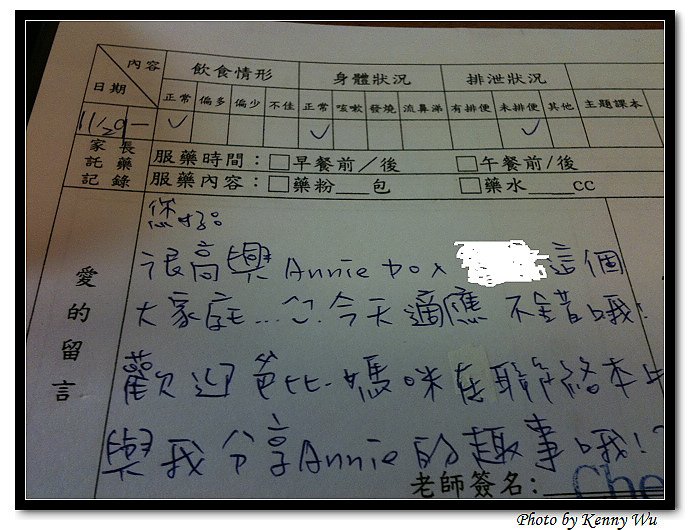 內容 飲食情形 身體狀況 排泄狀況
日期 正常 偏多 偏少 不佳 正常 咳嗽 發燒 流鼻涕 有排便 未排便 其他 主題課本
11/29 一 ✓ ✓ ✓
家長託藥記錄
服藥時間：□早餐前／後 □午餐前/後
服藥內容：□藥粉___包 □藥水____cc
愛的留言
您好:
很高興Annie 加入 這個
大家庭...^^.今天適應不錯哦!
歡迎爸比.媽咪在聯絡本中
與我分享Annie的趣事哦!
老師簽名: Che
Photo by Kenny Wu